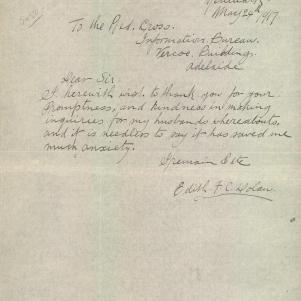 May 24th 1917
To the Red. Cross.
Information. Bureau.
Verco. Building.
Adelaide.
Dear Sir.
I herewith wish to thank you for your
promptness, and kindness in making
inquiries for my husbands whereabouts,
and it is needless to say it has saved me
much anxiety.
I remain Etc
Edith F. C. Nolan